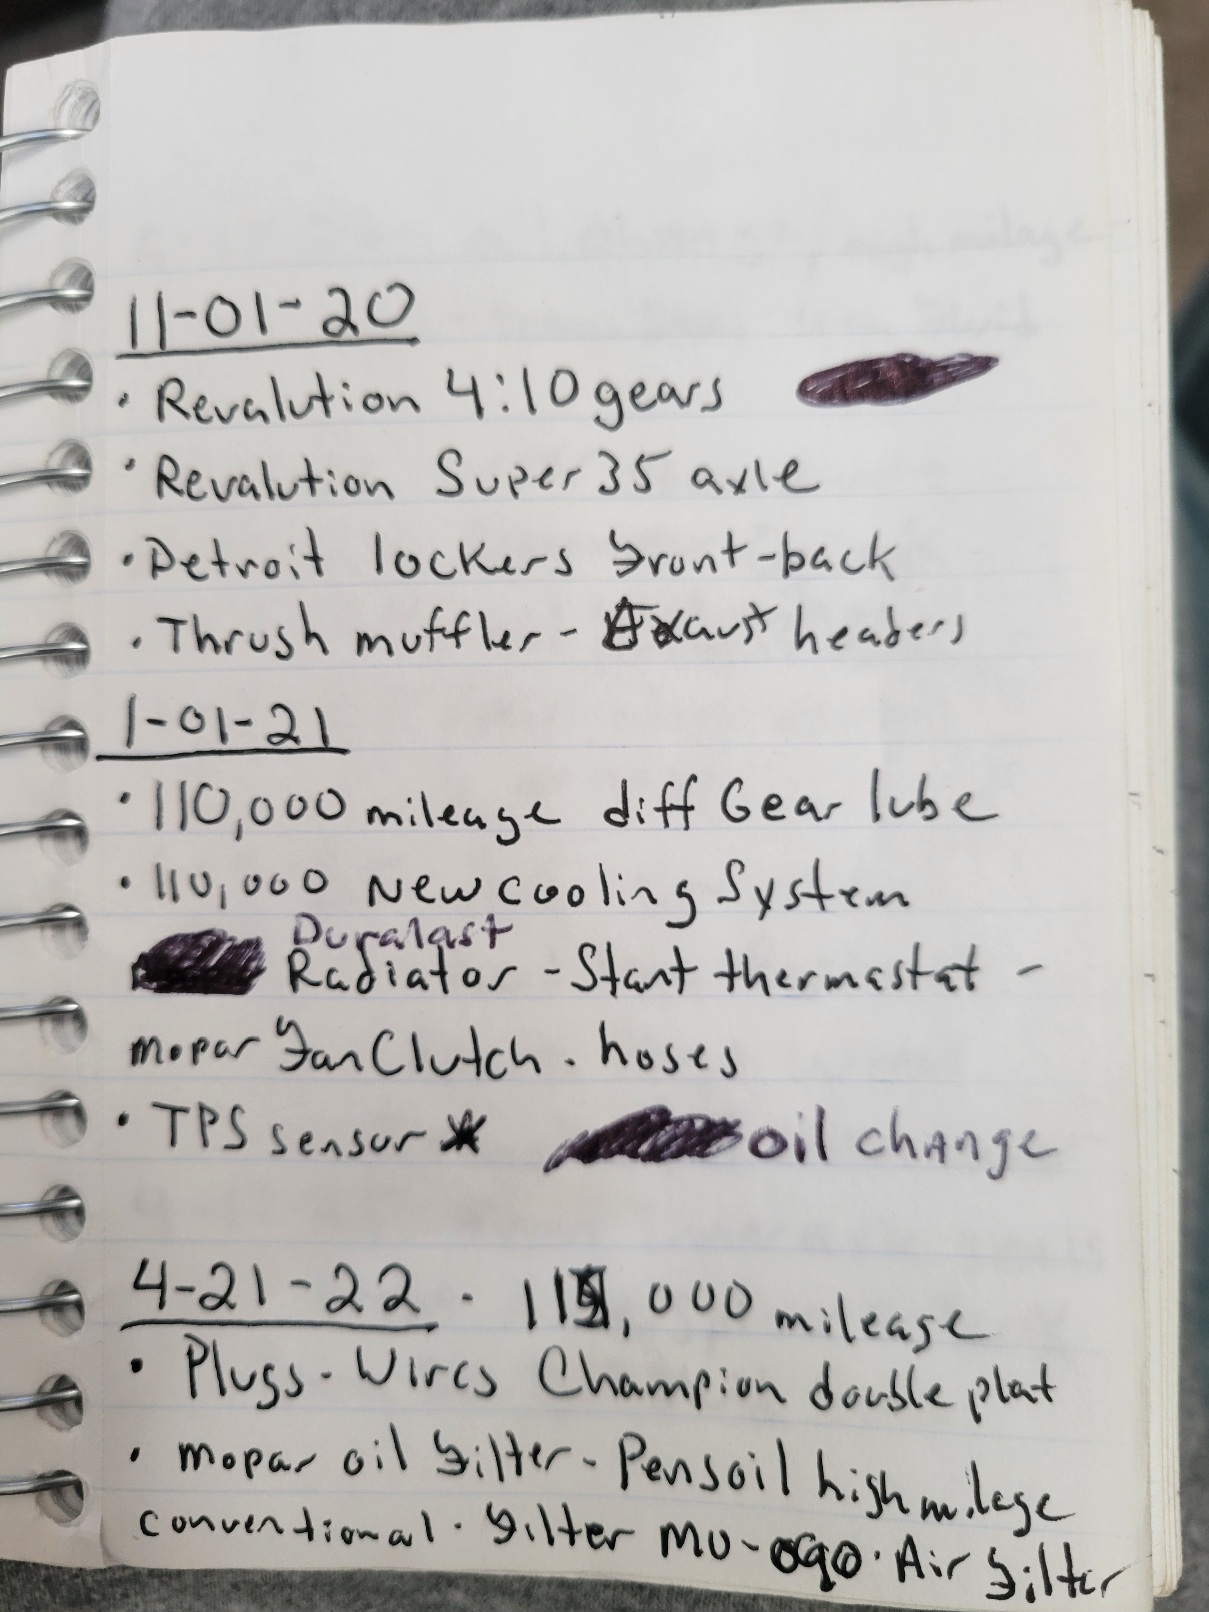 11-01-20
· Revalution 4:10 gears
· Revalution Super 35 axle
· Detroit lockers front-back
· Thrush muffler - Exaust headers
1-01-21
· 110,000 mileage diff Gear lube
· 110,000 New cooling System
Duralast
Radiator - Stant thermastat -
mopar fan Clutch . hoses
· TPS sensor * oil change
4-21-22 · mileage
· Plugs - Wires Champion double plat
· mopar oil filter - Pensoil high milage
conventional · filter MO-090 · Air filter